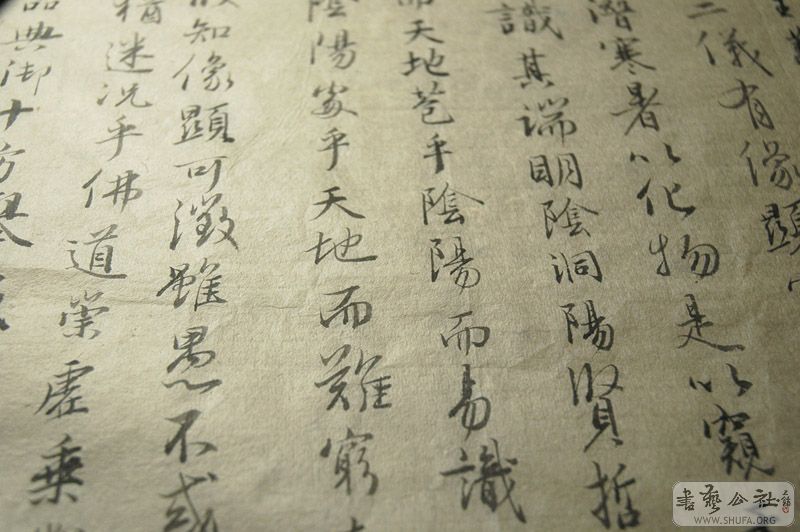 二儀有像顯
潛寒暑以化物是以窺
識其端明陰洞陽賢哲
而天地苞乎陰陽而易識
陰陽處乎天地而難窮
故知像顯可徵雖愚不或
猶迷況乎佛道崇虛乘
品典御十方舉
書藝公社
WWW.SHUFA.ORG